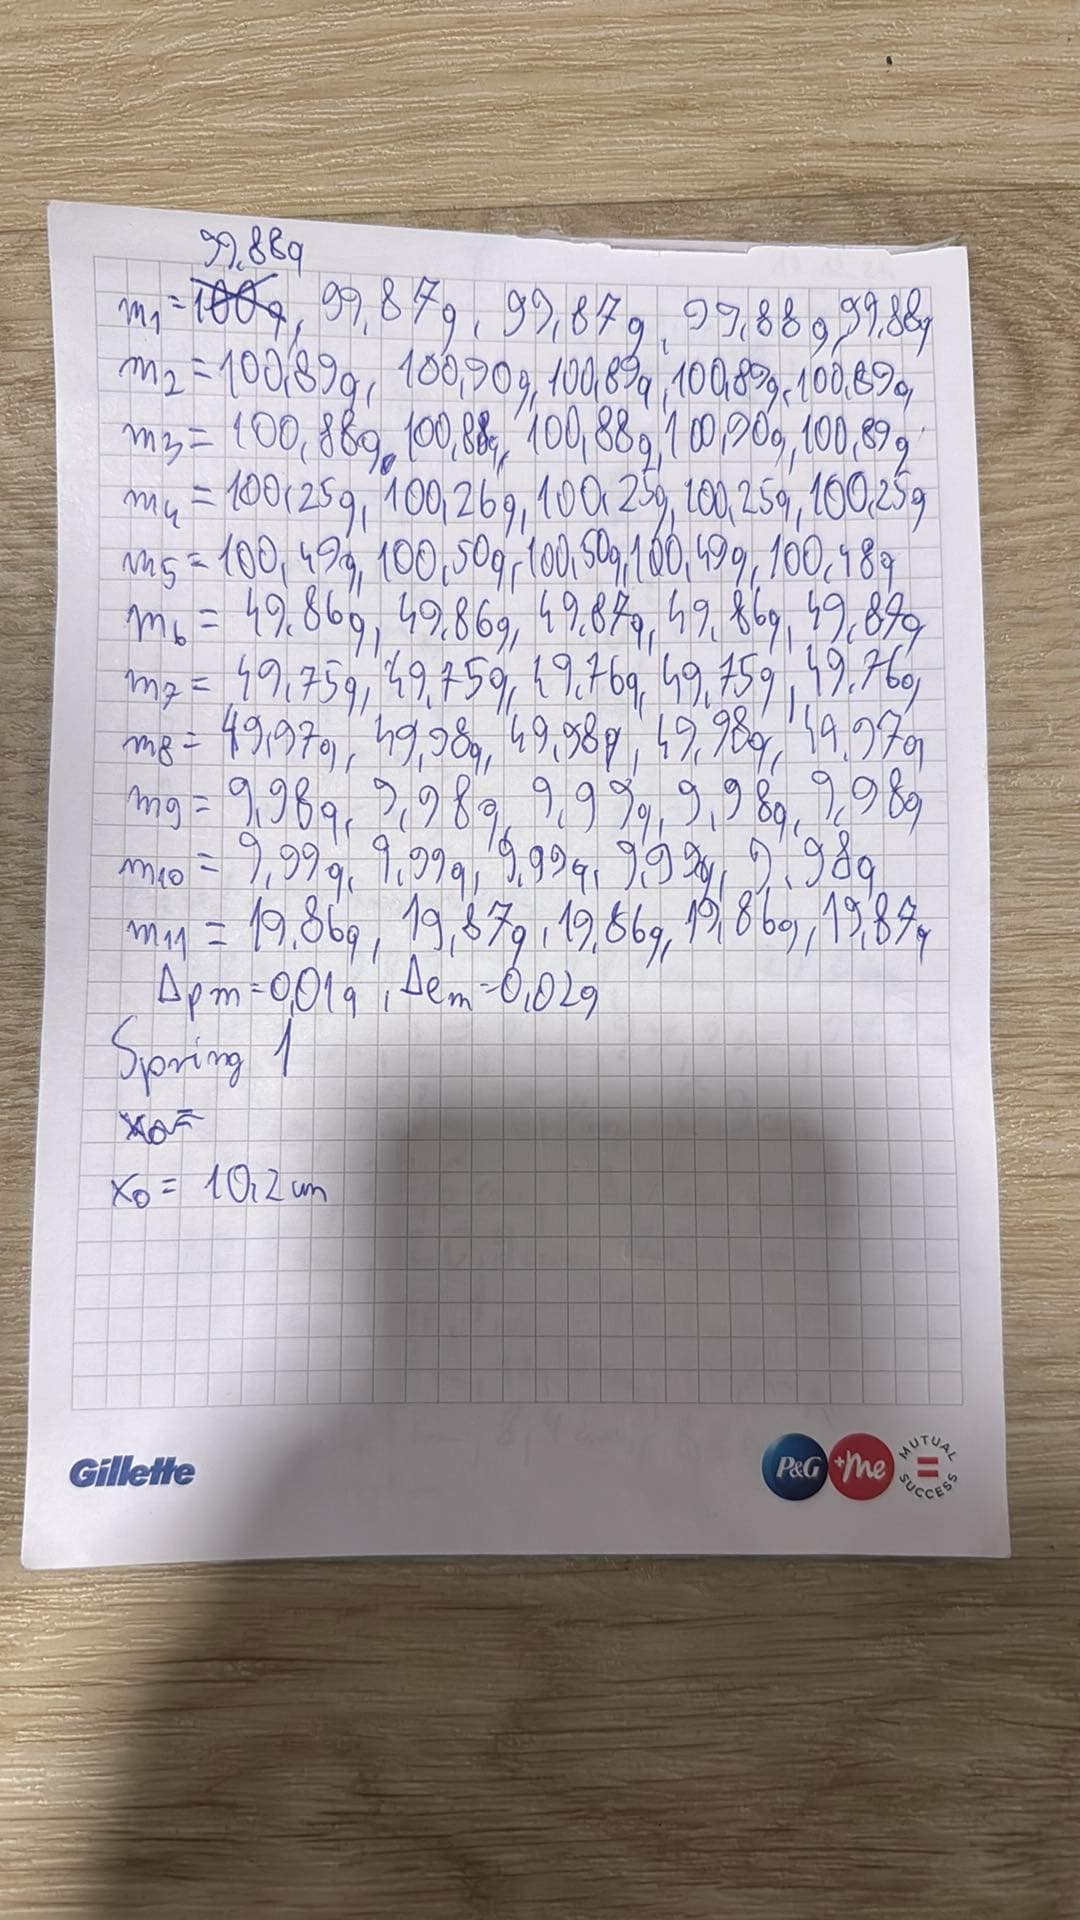 99,88g
m1=100g, 99,87g, 99,87g, 99,88g, 99,88g
m2=100,89g, 100,90g, 100,89g, 100,89g, 100,89g
m3= 100,88g, 100,88g, 100,88g, 100,90g, 100,89g
m4 = 100,25g, 100,26g, 100,25g, 100,25g, 100,25g
m5= 100,49g, 100,50g, 100,50g, 100,49g, 100,48g
m6 = 49,86g, 49,86g, 49,87g, 49,86g, 49,87g
m7 = 49,75g, 49,75g, 49,76g, 49,75g, 49,76g
m8= 49,97g, 49,98g, 49,98g, 49,98g, 49,97g
m9 = 9,98g, 9,98g, 9,99g, 9,98g, 9,98g
m10 = 9,99g, 9,99g, 9,99g, 9,99g, 9,98g
m11 = 19,86g, 19,87g, 19,86g, 19,86g, 19,87g
Δpm=0,01g, Δem=0,02g
Spring 1
x0=
x0= 10,2cm
Gillette
P&G +me MUTUAL = SUCCESS